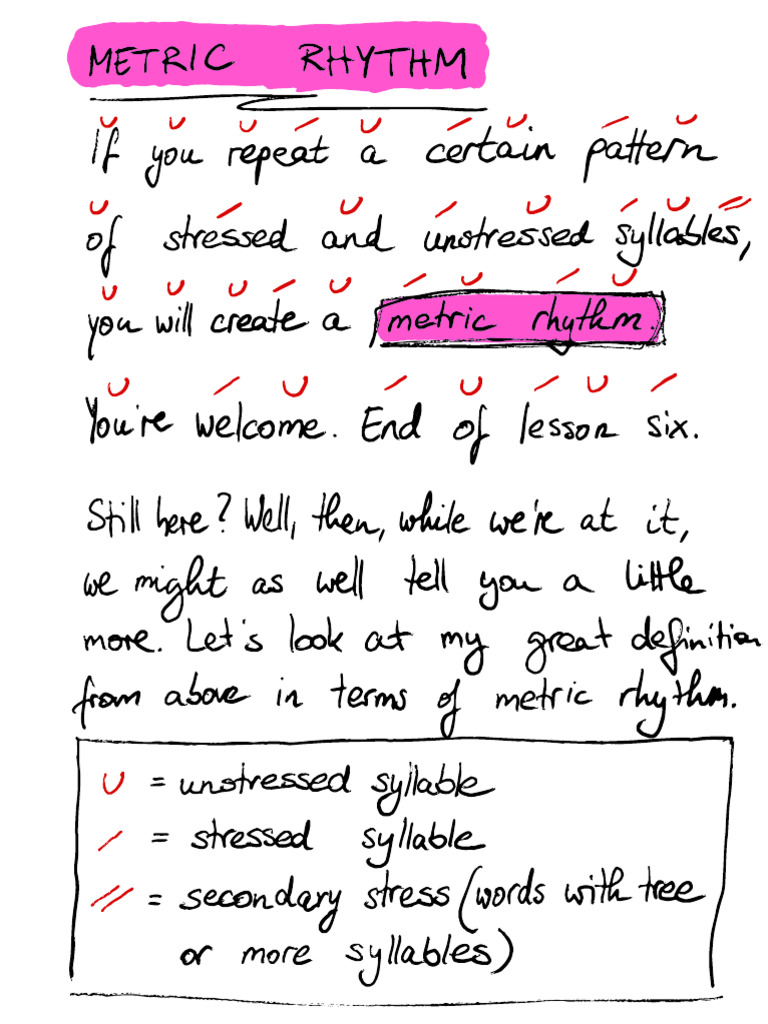 METRIC RHYTHM
If you repeat a certain pattern
of stressed and unstressed syllables,
you will create a metric rhythm.
You're welcome. End of lesson six.
Still here? Well, then, while we're at it,
we might as well tell you a little
more. Let's look at my great definition
from above in terms of metric rhythm.
∪ = unstressed syllable
/ = stressed syllable
// = secondary stress (words with tree
or more syllables)